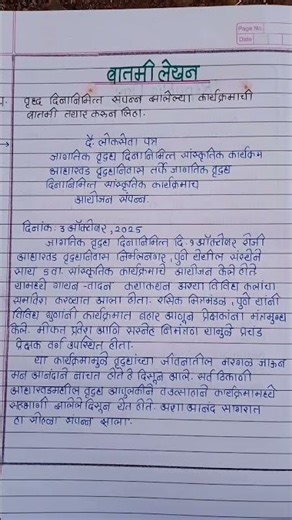 Page No.
Date
बातमी लेखन
प्र. वृद्ध दिनानिमित्त संपन्न झालेल्या कार्यक्रमाची
बातमी तयार करून लिहा.
दै. लोकसेवा पत्र
जागतिक वृद्ध दिनानिमित्त सांस्कृतिक कार्यक्रम
आधारवड वृद्धनिवास तर्फे जागतिक वृद्ध
दिनानिमित्त सांस्कृतिक कार्यक्रमाचे
आयोजन संपन्न.
दिनांक: 3 ऑक्टोबर, 2025
जागतिक वृद्ध दिनानिमित्त दि. 1 ऑक्टोबर रोजी
आधारवड वृद्धनिवास निर्मलनगर, पुणे येथील संस्थेने
सायं 5 वा. सांस्कृतिक कार्यक्रमाचे आयोजन केले होते
यामध्ये गायन-वादन कथाकथन अश्या विविध कलांचा
समावेश करण्यात आला होता. रसिक मित्रमंडळ, पुणे यांनी
विविध गुणांनी कार्यक्रमात बहार आणून प्रेक्षकांना मंत्रमुग्ध
केले. मोफत प्रवेश आणि सस्नेह निमंत्रण यामुळे प्रचंड
प्रेक्षक वर्ग उपस्थित होता.
या कार्यक्रमामुळे वृद्धांच्या जीवनातील मरगळ जाऊन
मन आनंदाने नाचत होते हे दिसून आले. सर्व ठिकाणी
आधारवडमधील वृद्ध आपुलकीने व उत्साहाने कार्यक्रमामध्ये
सहभागी झालेले दिसून येत होते. अशा आनंद सागरात
हा सोहळा संपन्न झाला.